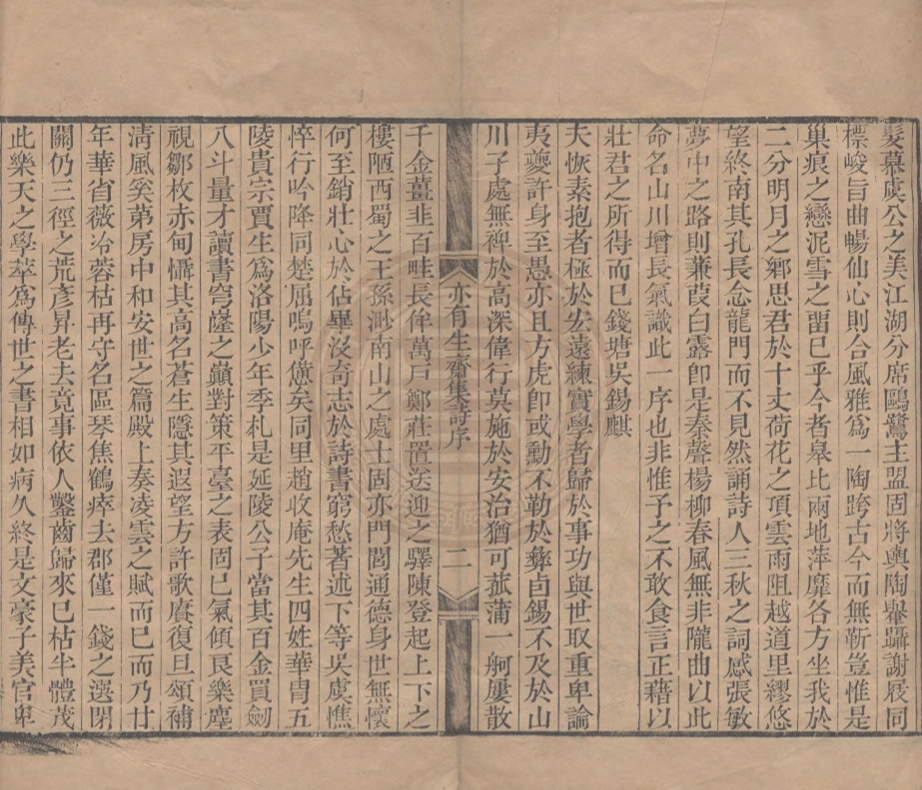 髮慕虞公之美江湖分席鷗鷺主盟固將輿陶轝躡謝屐同
標峻旨曲暢仙心則合風雅爲一陶跨古今而無靳豈惟是
巢痕之戀泥雪之畱已乎今者皋比兩地萍靡各方坐我於
二分明月之鄉思君於十丈荷花之頂雲雨阻越道里繆悠
望終南其孔長念龍門而不見然誦詩人三秋之詞感張敏
夢中之路則蒹葭白露卽是秦聲楊柳春風無非隴曲以此
命名山川增長氣識此一序也非惟予之不敢食言正藉以
壯君之所得而已錢塘吳錫麒
夫恢素抱者極於宏遠練實學者歸於事功與世取重卑論
夷夔許身至愚亦且方虎卽或勳不勒於彝卣錫不及於山
川子處無裨於高深偉行莫施於安治猶可菰蒲一舸屢散
亦有生齋集詩序 二
千金薑韭百畦長侔萬戸鄭莊置送迎之驛陳登起上下之
樓陋西蜀之王孫渺南山之處士固亦門閭通德身世無懷
何至銷壯心於佔畢沒奇志於詩書窮愁著述下等吳虞憔
悴行吟降同楚屈嗚呼傎矣同里趙收庵先生四姓華胄五
陵貴宗賈生爲洛陽少年季札是延陵公子當其百金買劒
八斗量才讀書穹窿之巔對策平臺之表固已氣傾良樂塵
視鄒枚赤甸懾其高名蒼生隱其遐望方許歌賡復旦頌補
淸風奚第房中和安世之篇殿上奏凌雲之賦而已而乃廿
年華省薇冷蓉枯再守名區琴焦鶴瘁去郡僅一錢之選閉
關仍三徑之荒彥昇老去竟事依人鑿齒歸來已枯半體茂
此樂天之學萃爲傳世之書相如病久終是文豪子美官卑